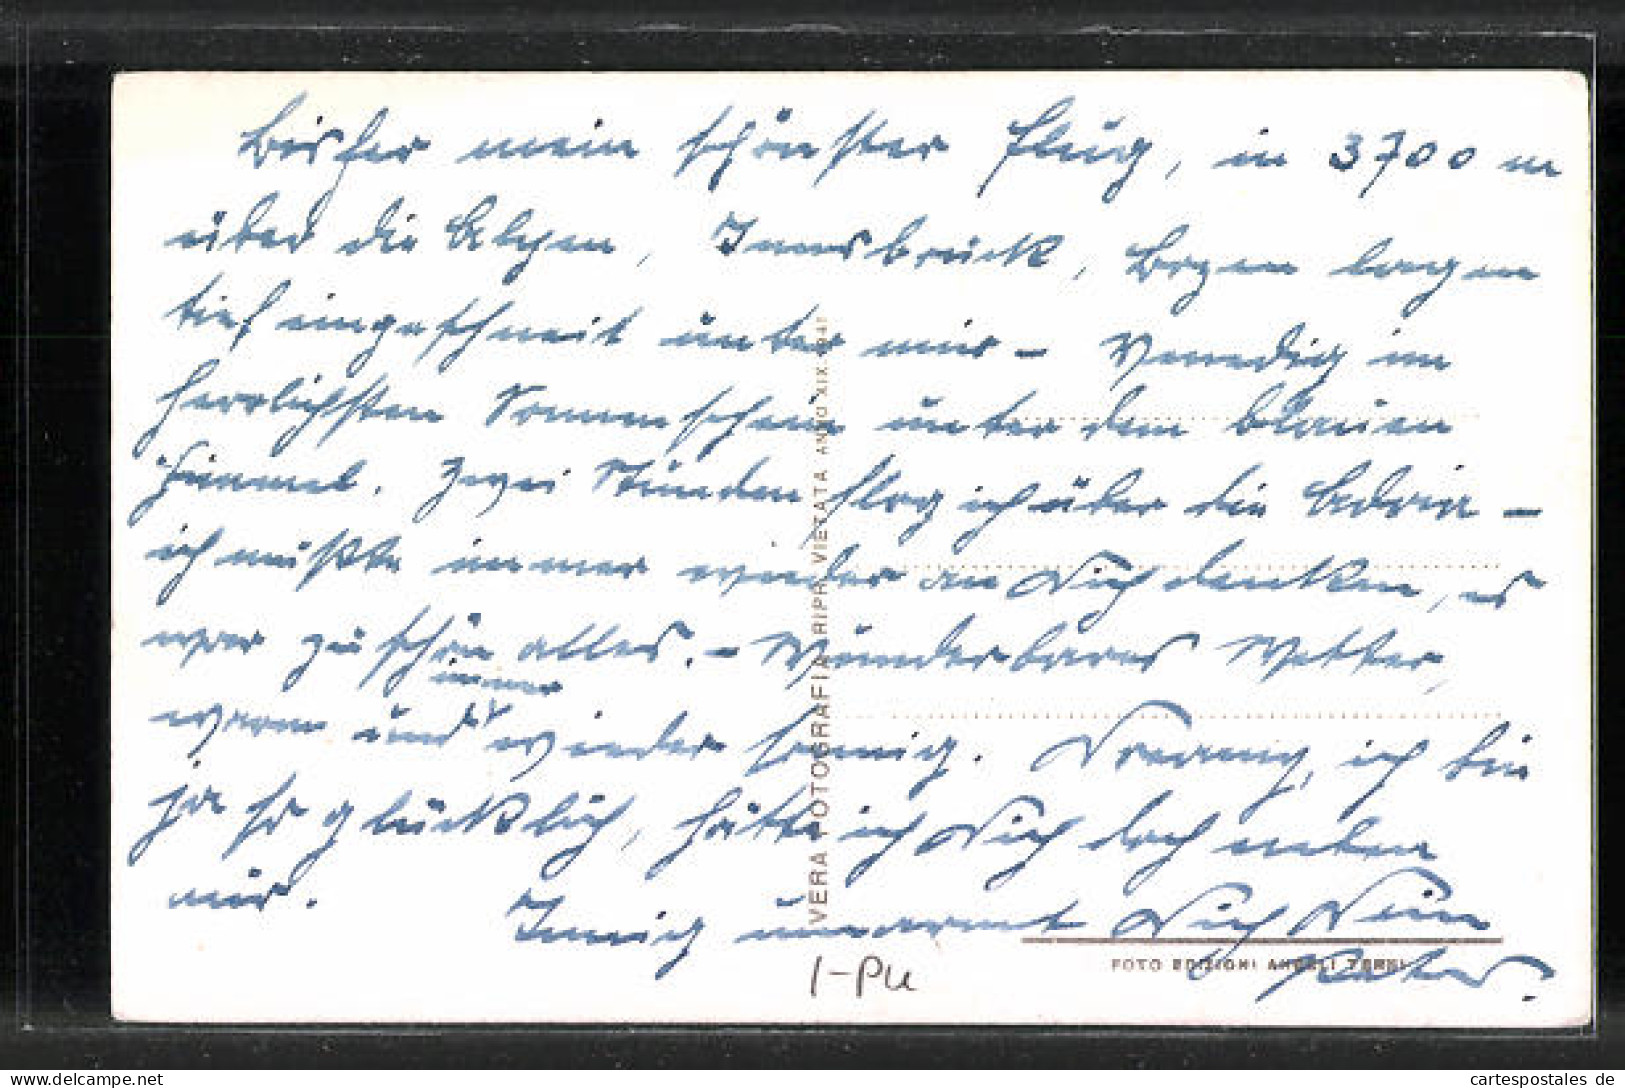 Bisher mein schönster Flug, in 3700 m
über die Alpen, Innsbruck, Bozen lagen
tief eingeschneit unter mir – Venedig im
herrlichsten Sonnenschein unter dem blauen
Himmel. Zwei Stunden flog ich über die Adria –
ich mußte immer wieder an Dich denken, es
war zu schön alles. – Wunderbares Wetter,
warm und immer wieder sonnig. ich bin
ja so glücklich, hätte ich Dich doch neben
mir. Innig umarmt Dich Dein
VERA FOTOGRAFIA RIPR. VIETATA ANNO XIX
FOTO EDIZIONI ANGELI TERNI
I-Pu
cartespostales de